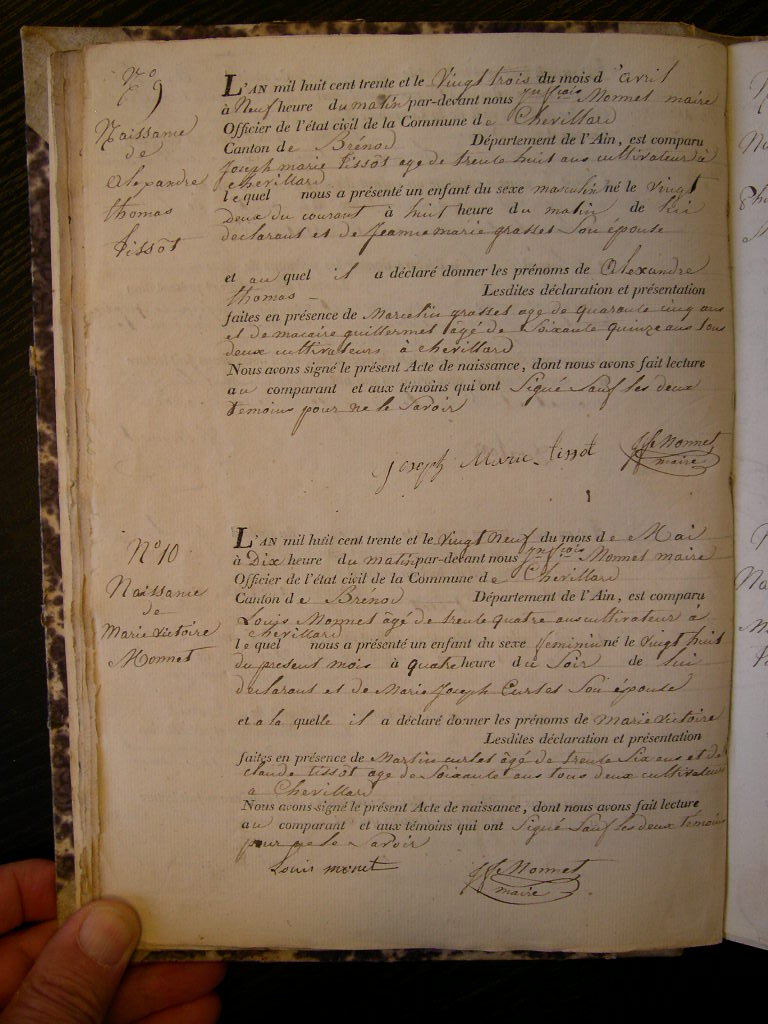 N.º 9
Naissance
de
Alexandre
thomas
tissôt
L'AN mil huit cent trente et le Vingt trois du mois d'avril
à Neuf heure du matin par-devant nous Monnet maire
Officier de l'état civil de la Commune de Chevillard
Canton de Brénod Département de l'Ain, est comparu
Joseph marie tissôt age de trente huit ans cultivateur à
chevillard
lequel nous a présenté un enfant du sexe masculin né le vingt
deux du courant à huit heure du matin de lui
declarant et de Jeanne marie grasset Son épouse
et au quel il a déclaré donner les prénoms de Alexandre
thomas — Lesdites déclaration et présentation
faites en présence de Marcelin grasset age de quarante cinq ans
et de macaire guillermet âgé de Soixante quinze ans tous
deux cultivateurs à chevillard
Nous avons signé le présent Acte de naissance, dont nous avons fait lecture
au comparant et aux témoins qui ont Signé Sauf les deux
temoins pour ne le Savoir
joseph Marie tissot Monnet
maire
N.º 10
Naissance
de
Marie victoire
Monnet
L'AN mil huit cent trente et le vingt Neuf du mois de Mai
à Dix heure du matin par-devant nous Monnet maire
Officier de l'état civil de la Commune de Chevillard
Canton de Brénod Département de l'Ain, est comparu
Louis Monnet âgé de trente quatre ans cultivateur à
chevillard
lequel nous a présenté un enfant du sexe feminin né le vingt huit
du present mois à quatre heure du Soir de lui
declarant et de Marie Joseph Curlet Son épouse
et a la quelle il a déclaré donner les prénoms de marie victoire
Lesdites déclaration et présentation
faites en présence de Martin curlet âgé de trente Six ans et de
claude tissôt age de Soixante ans tous deux cultivateurs
à Chevillard
Nous avons signé le présent Acte de naissance, dont nous avons fait lecture
au comparant et aux témoins qui ont Signé Sauf les deux temoins
pour ne le Savoir
Louis monet Monnet
maire